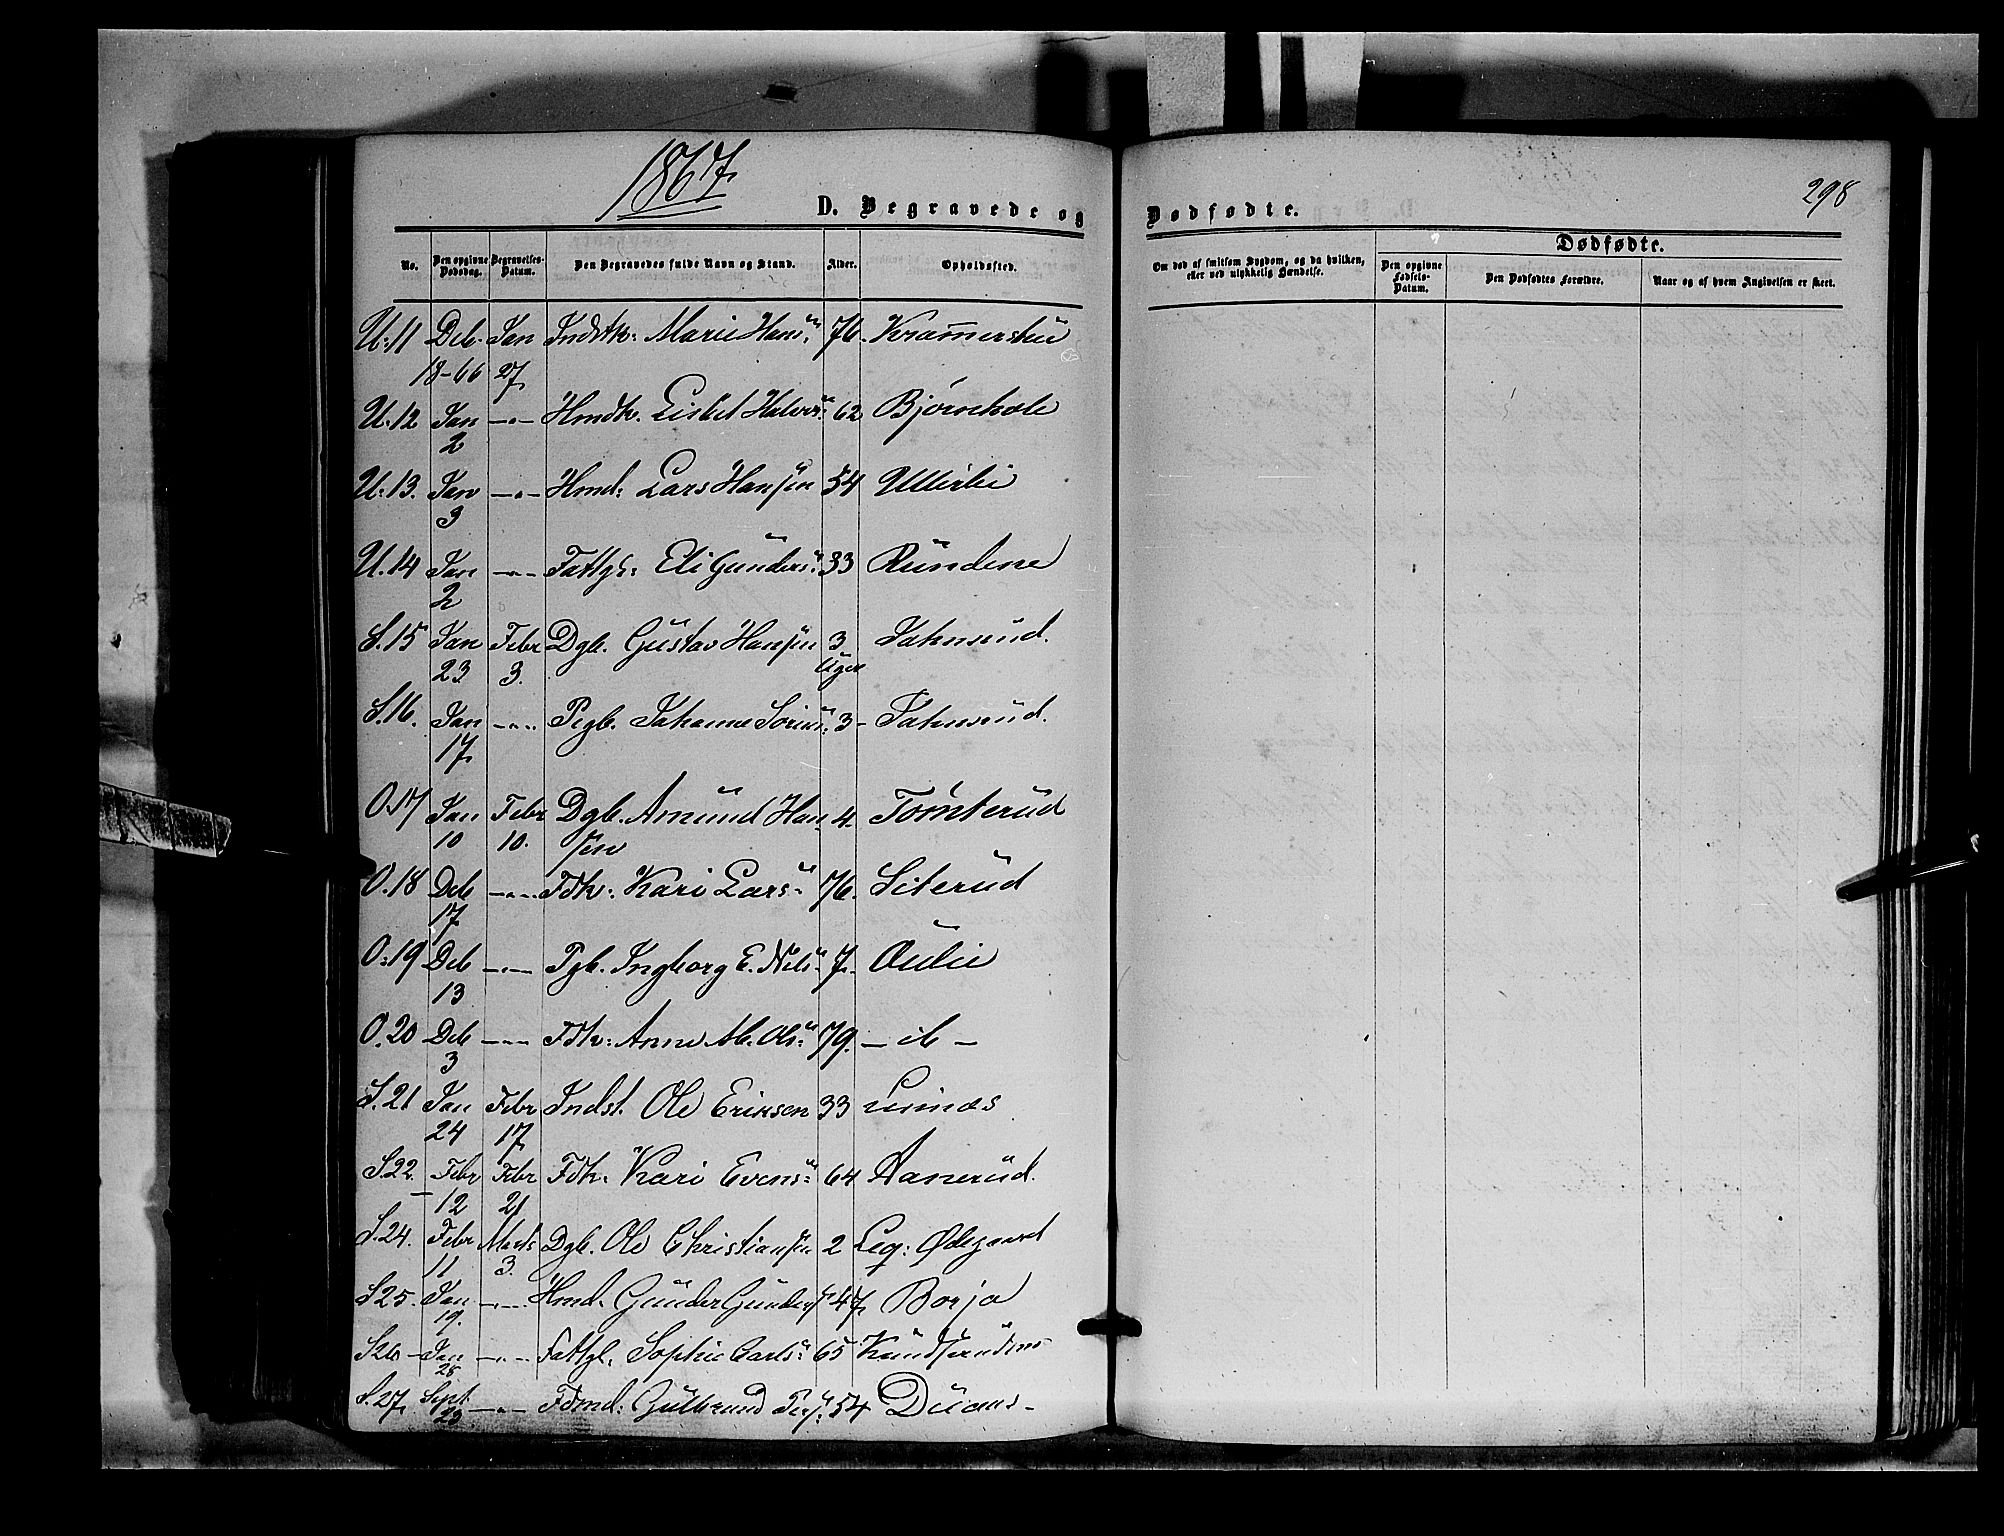 1867
298
D. Begravede og Dødfødte.
Dødfødte.
No. Den opgivne Dødsdag. Begravelses-Datum. Den Begravedes fulde Navn og Stand. Alder. Opholdssted.
Om død af smitsom Sygdom, og da hvilken, eller ved ulykkelig Hændelse. Den opgivne Fødsels-Datum. Den Dødfødtes Forældre. Naar og af hvem Angivelsen er skeet.
U. 11 Deb. Jan Indstk: Marie Hans: 76.
18-66 27
U. 12 Jan -"- Hmdk. Lisbet Halvors: 62 Bjørnhole
2
U. 13. Jan -"- Hmd: Lars Hansen 54 Ullerlie
3
U. 14 Jan -"- Fattgl: Eli Gunders: 33 Rundene
2
S. 15 Jan Febr Dgb. Gustav Hansen 3 Jahnsrud.
23 3. Uger
S. 16. Jan -"- Pigb. Johanne 3- Jahnsrud.
17
O. 17 Jan Febr Dgb. Amund Han- 4. Tomterud
10 10. sen
O. 18 Deb -"- Fdk: Kari Lars: 76. Seterud
17
O: 19 Deb -"- Pgb. Ingborg E. Nils: 7. Oulie
13
O. 20 Deb -"- Fdk: Anne M. Ols: 79. - ib -
3
S. 21 Jan Febr Indst. Ole Eriksen 33 Linnæs
24 17
S. 22. Febr Febr Fdk: Kari Evens: 64 Aanerud.
12 21
S. 24. Febr Marts Dgb. Ole Christiansen 2 Leq: Ødegaard
11 3.
S. 25. Jan -"- Hmd. Gunder Gunders: 47 Borja
19.
S. 26- Jan -"- Fattgl. Sophie Carls: 65
28
S. 27. Sept. -"- Fdmd: Gulbrand 54
23